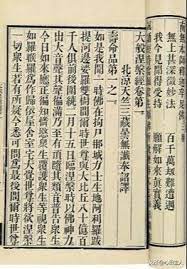 南無本師釋迦牟尼佛
無上甚深微妙法 百千萬劫難遭遇
我今見聞得受持 願解如來真實義
大般涅槃經卷第一
北涼天竺三藏曇無讖奉詔譯
壽命品第一
如是我聞一時佛在拘尸那城力士生地阿利羅跋
提河邊娑羅雙樹間爾時世尊與大比丘八十億百
千人俱前後圍遶二月十五日臨涅槃時以佛神力
出大音聲其聲遍滿乃至有頂隨其類音普告眾生
今日如來應正遍知憐愍眾生覆護眾生等視眾生
如羅睺羅為作歸依屋舍室宅大覺世尊將欲涅槃
一切眾生若有所疑今悉可問為最後問爾時世尊